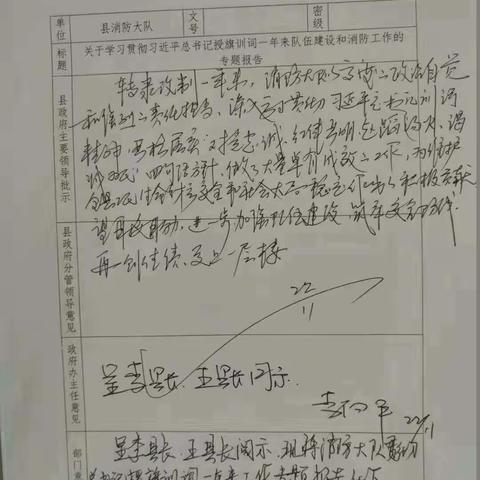 单位 县消防大队 文号 密级
标题 关于学习贯彻习近平总书记授旗训词一年来队伍建设和消防工作的
专题报告
县政府主要领导批示
转隶改制一年来,消防大队以高度的政治自觉
和强烈的责任担当,深入学习贯彻习近平总书记训词
精神,严格落实"对党忠诚、纪律严明、赴汤蹈火、竭
诚为民"四句话方针,做了大量卓有成效的工作,为维护
人民生命财产安全和社会大局稳定作出了积极贡献
望再接再励,进一步加强队伍建设,筑牢安全防线,
再创佳绩、更上一层楼
22/11
县政府分管领导意见
政府办主任意见
呈李县长、王县长阅示.
22/11
部门意
呈李县长、王县长阅示,现将消防大队
总书记授旗训词一年来工作专题报告